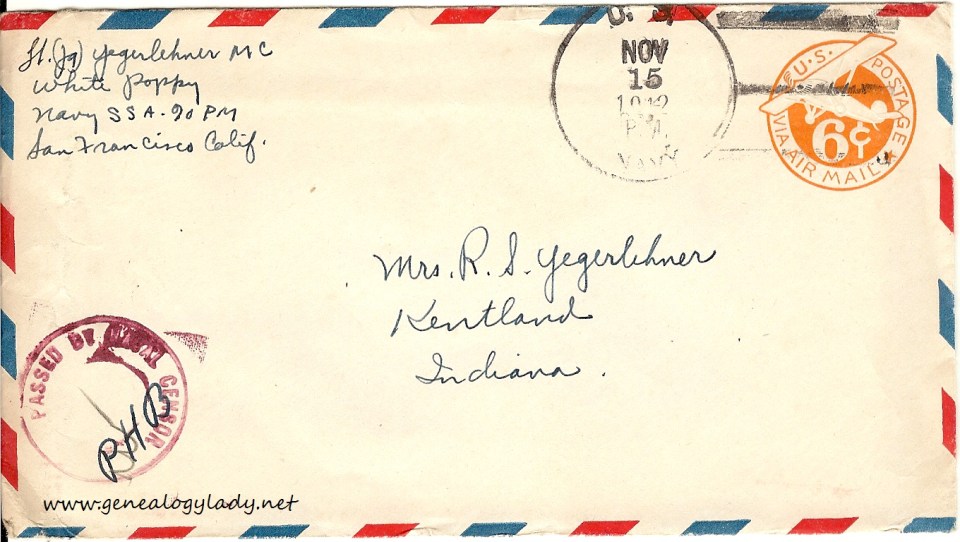 Lt. (Jg) Yegerlehner MC
White Poppy
Navy SSA-90 PM
San Francisco Calif.
U. S.
NOV
15
1942
P.M.
NAVY
U.S. POSTAGE
6¢
VIA AIR MAIL
Mrs. R. S. Yegerlehner
Kentland
Indiana.
PASSED BY NAVAL CENSOR
www.genealogylady.net